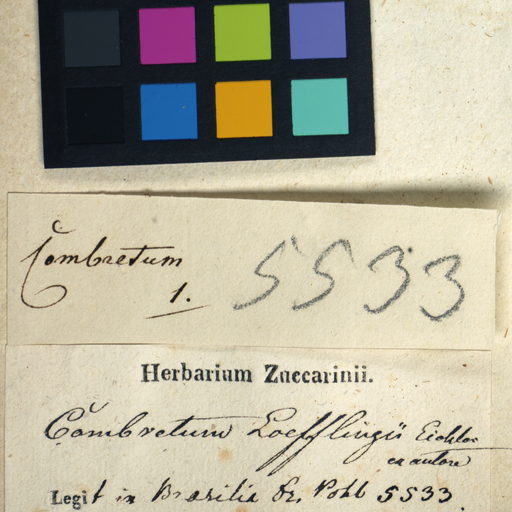 Combretum
1.
5533
Herbarium Zuccarinii.
Combretum Loefflingii Eichler
ex autore
Legit in Brasilia Dr. Pohl 5533